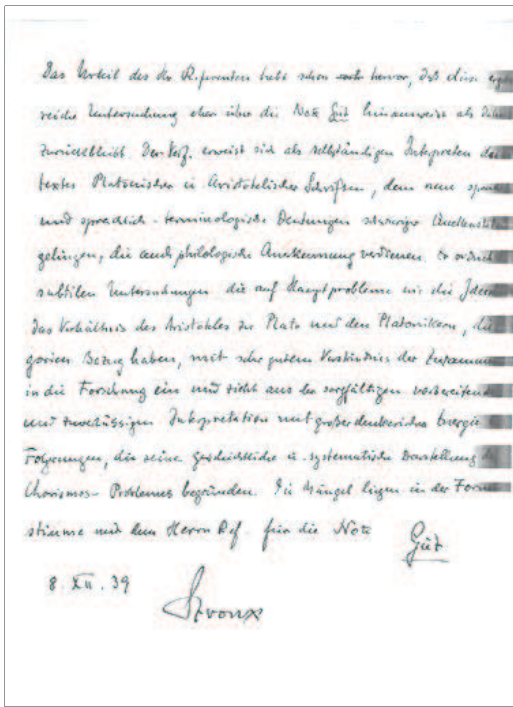 Das Urteil des Hr. Referenten hebt schon hervor, daß diese
reiche Untersuchung eher über die Note Gut hinausweist als
zurückbleibt. Der Verf. erweist sich als selbständigen Interpreten
textes Platonischer u. Aristotelischer Schriften, dem neue
und sprachlich-terminologische Deutungen schwieriger
gelingen, die auch philologische Anerkennung verdienen. Er
subtilen Untersuchungen die auf Hauptprobleme wie die Ideen
das Verhältnis des Aristoteles zu Plato und den Platonikern, die
gorien Bezug haben, mit sehr gutem Verständnis der
in die Forschung ein und zieht aus der sorgfältigen
und zuverlässigen Interpretation mit großer denkerischer Energie
Folgerungen, die seine geschichtliche u. systematische Darstellung
Chorismos-Problemes begründen. Die Mängel liegen in der
stimme mit dem Herrn Ref. für die Note Gut
8. XII. 39
Stroux